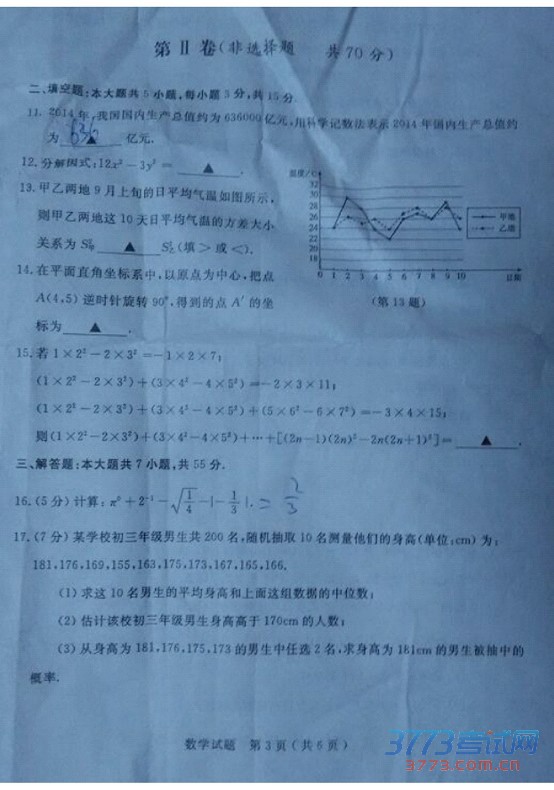 第Ⅱ卷(非选择题 共70分)
二、填空题:本大题共5小题,每小题3分,共15分.
11. 2014年,我国国内生产总值约为636000亿元,用科学记数法表示2014年国内生产总值约
为 ▲ 亿元.
12.分解因式:12x²-3y²= ▲ .
13.甲乙两地9月上旬的日平均气温如图所示,
则甲乙两地这10天日平均气温的方差大小
关系为S²甲 ▲ S²乙(填>或<).
温度/℃
32
30
28
26
24
22
20
18
0 1 2 3 4 5 6 7 8 9 10 日期
甲地
乙地
(第13题)
14.在平面直角坐标系中,以原点为中心,把点
A(4,5)逆时针旋转90°,得到的点A′的坐
标为 ▲ .
15.若1×2²-2×3²=-1×2×7;
(1×2²-2×3²)+(3×4²-4×5²)=-2×3×11;
(1×2²-2×3²)+(3×4²-4×5²)+(5×6²-6×7²)=-3×4×15;
则(1×2²-2×3²)+(3×4²-4×5²)+…+[(2n-1)(2n)²-2n(2n+1)²]= ▲ .
三、解答题:本大题共7小题,共55分.
16.(5分)计算:π⁰+2⁻¹-√(1/4)-|-1/3|. = 2/3
17.(7分)某学校初三年级男生共200名,随机抽取10名测量他们的身高(单位:cm)为:
181,176,169,155,163,175,173,167,165,166.
(1)求这10名男生的平均身高和上面这组数据的中位数;
(2)估计该校初三年级男生身高高于170cm的人数;
(3)从身高为181,176,175,173的男生中任选2名,求身高为181cm的男生被抽中的
概率.
数学试题 第3页(共6页)
3773考试网
3773.com.cn